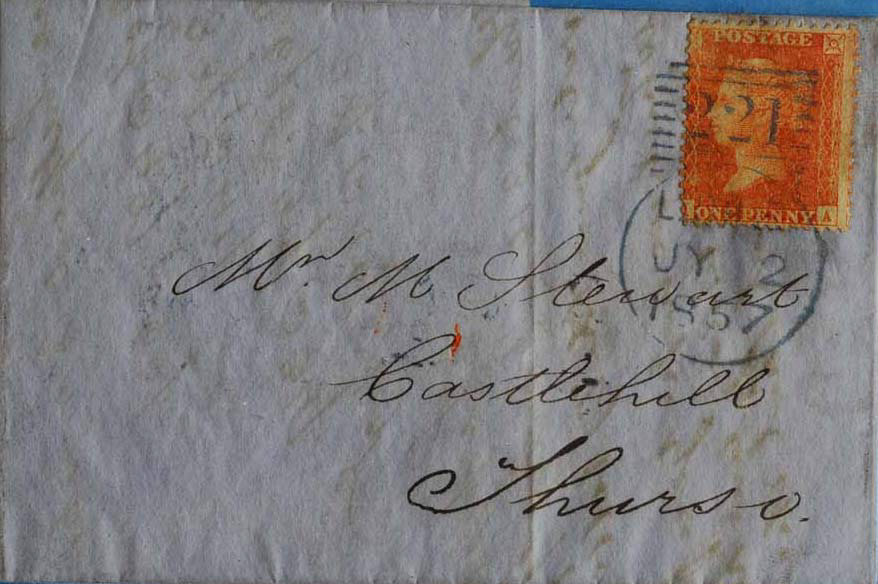 POSTAGE
221
ONE PENNY A
UY 2
1857
Mr. M Stewart
Castlehill
Thurso.